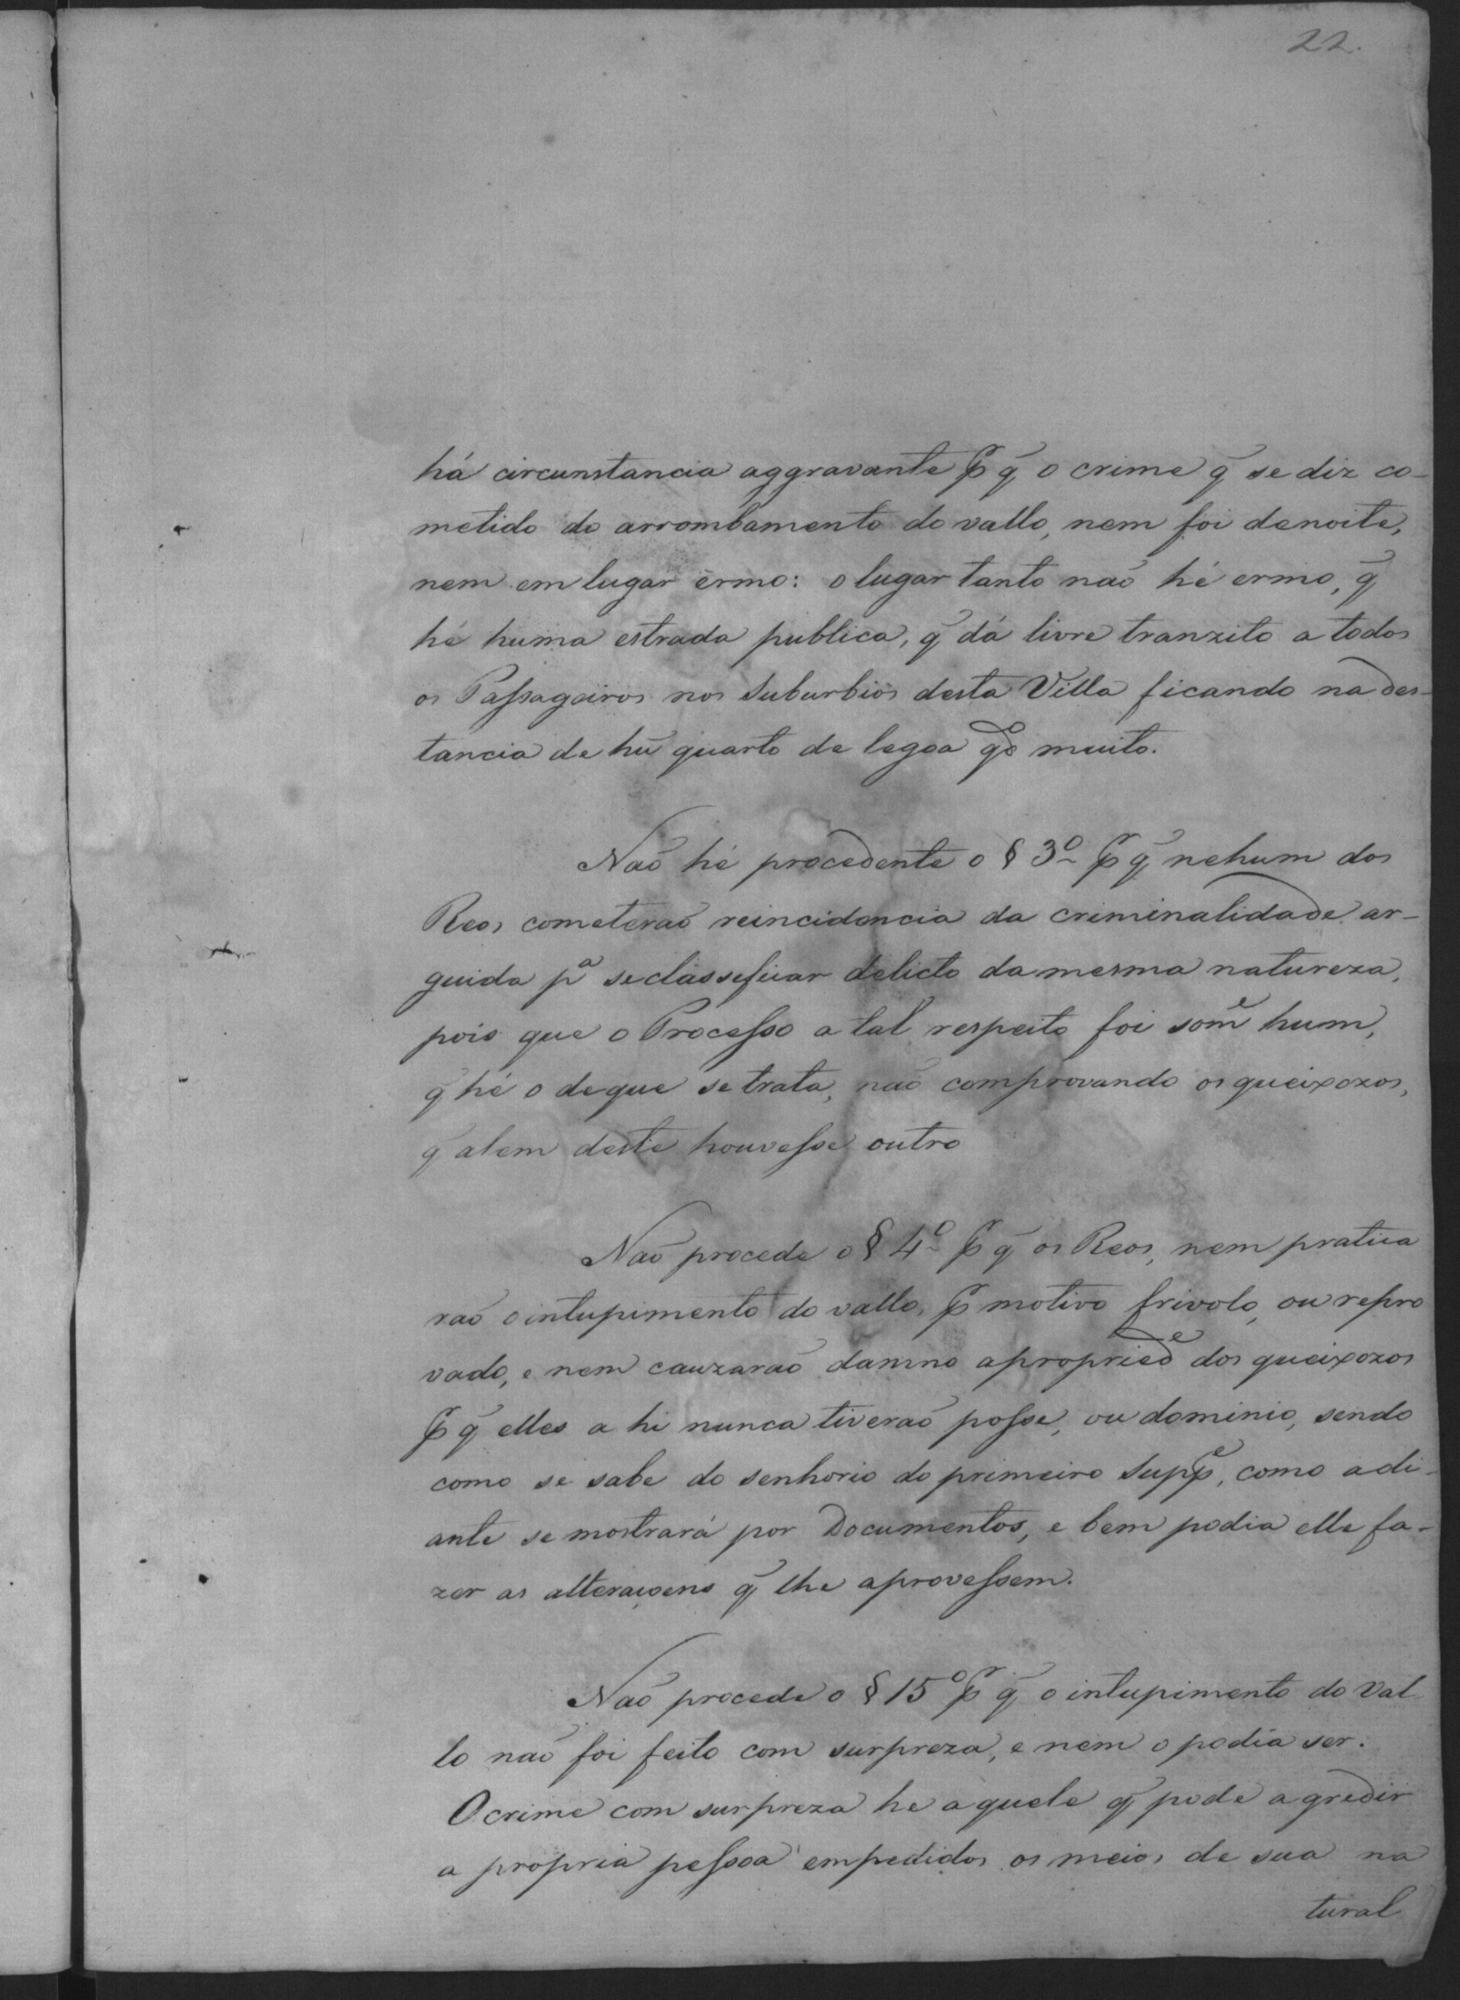 22.
há circunstancia aggravante p̃ q̃ o crime q̃ se diz co-
metido do arrombamento do vallo, nem foi denoite,
nem em lugar érmo: o lugar tanto naõ hé ermo, q̃
hé huma estrada publica, q̃ dá livre tranzito a todos
os Passageiros nos Suburbios desta Villa ficando na des-
tancia de hũ quarto de legoa qdo muito.
Naõ hé procedente o § 3º p̃ q̃ nehum dos
Reos cometeraõ reincidencia da criminalidade ar-
guida pª se classeficar delicto da mesma natureza,
pois que o Processo a tal respeito foi somẽ hum,
q̃ hé o de que se trata, naõ comprovando os queixozos,
q̃ alem deste houvesse outro
Naõ procede o § 4º p̃ q̃ os Reos, nem pratica
raõ o intupimento do vallo, p̃ motivo frivolo, ou repro
vado, e nem cauzaraõ damno a propriedᵉ dos queixozos
p̃ q̃ elles a hi nunca tiveraõ posse, ou dominio, sendo
como se sabe do senhorio do primeiro Suppᵉ, como adi-
ante se mostrará por Documentos, e bem podia elle fa-
zer as alteraçoens q̃ lhe aprovessem.
Naõ procede o § 15º p̃ q̃ o intupimento do Val
lo naõ foi feito com surpreza, e nem o podia ser.
O crime com surpreza he aquele q̃ pode agredir
a propria pessoa empedidos os meios de sua na
tural